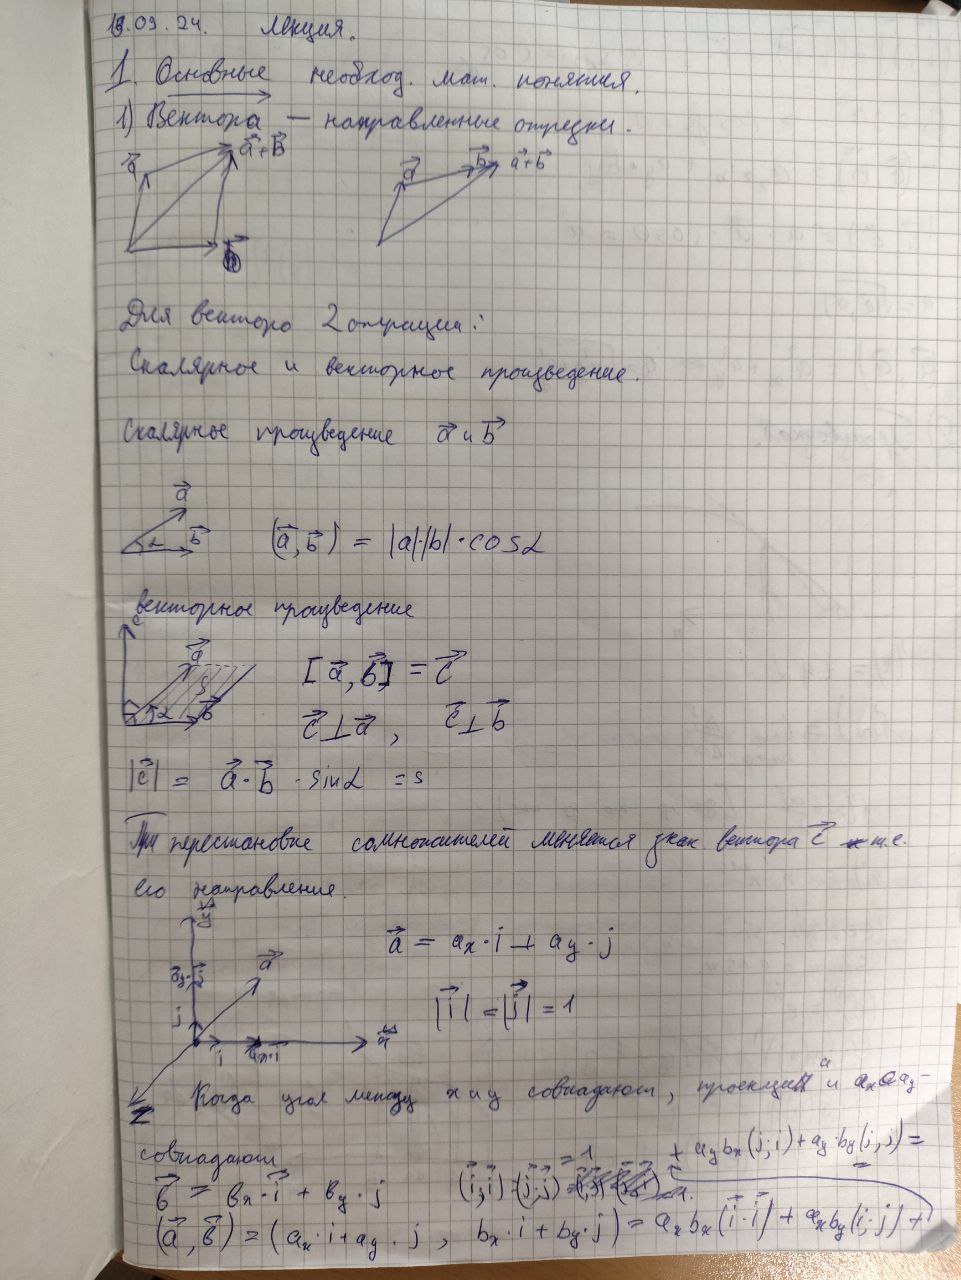 19.09.24. Лекция.
1. Основные необход. мат. понятия.
1) Вектора — направленные отрезки.
a⃗ a⃗+b⃗ b⃗
a⃗ b⃗ a⃗+b⃗
Для векторо 2 операции:
Скалярное и векторное произведение.
Скалярное произведение a⃗ и b⃗
a⃗ b⃗ α (a⃗,b⃗) = |a|·|b|·cosα
векторное произведение
c a⃗ S α b⃗
[a⃗,b⃗] = c⃗
c⃗⊥a⃗, c⃗⊥b⃗
|c⃗| = a⃗·b⃗·sinα = s
При перестановке сомножителей меняется знак вектора c⃗ т.е.
его направление.
y⃗ j a⃗ i ax·i x⃗ z
a⃗ = ax·i + ay·j
|i⃗| = |j⃗| = 1
Когда угол между x и y совпадают, проекции a и ax ay
совпадают
b⃗ = bx·i⃗ + by·j (i⃗,i⃗) (j⃗,j⃗) = 1
+ aybx(j,i) + ay·by(j,j) =
(a⃗,b⃗) = (ax·i + ay·j, bx·i + by·j) = axbx(i⃗·i⃗) + axby(i,j) +